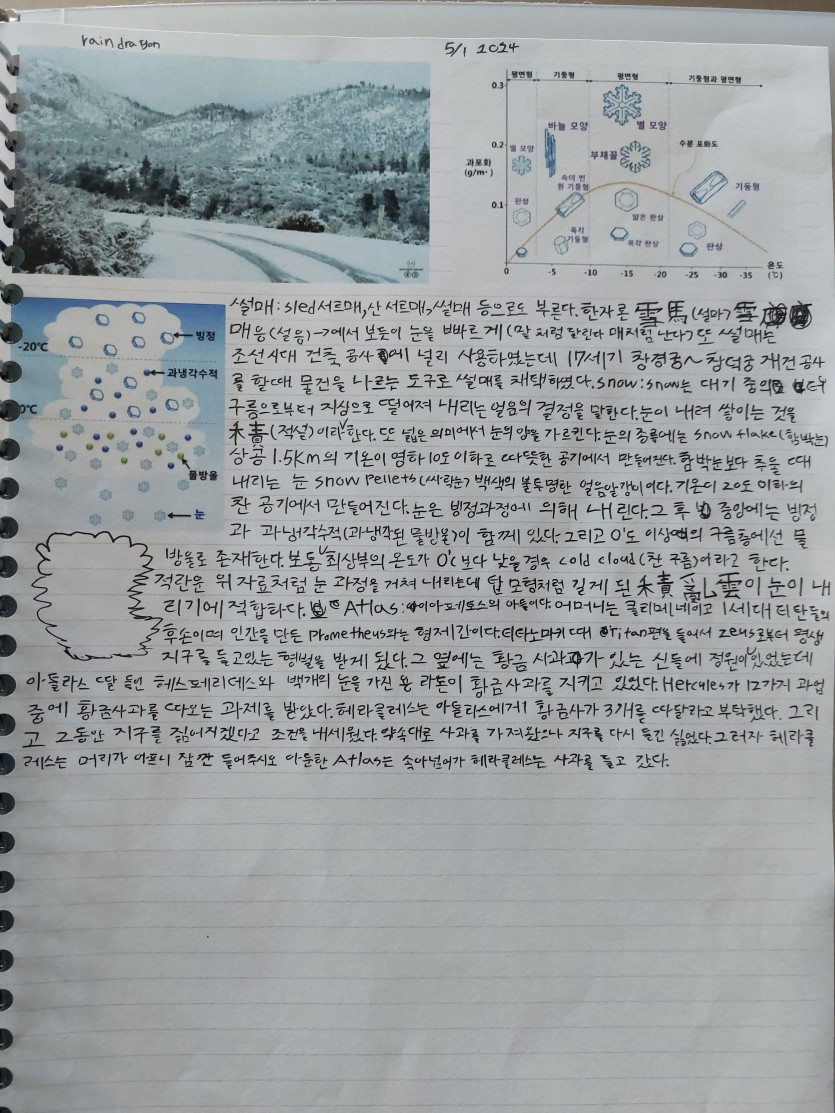 rain dragon
5/1 2024
평면형 기둥형 평면형 기둥형과 평면형
0.3
바늘 모양 별 모양
0.2
과포화
(g/m³)
별 모양 부채꼴 수분 포화도
속이 빈
원 기둥형 기둥형
0.1
판상 얇은 판상
육각
기둥형 육각 판상 판상
0 -5 -10 -15 -20 -25 -30 -35 온도
(℃)
빙정
-20°C
과냉각수적
0°C
물방울
눈
썰매: sled 서르매, 산 서르매, 썰매 등으로도 부른다. 한자론 雪馬(설마) 雪
매응(설응)→에서 보듯이 눈을 빠르게(말처럼 달린다 매처럼 난다) 또 썰매는
조선시대 건축 공사에 널리 사용하였는데 17세기 창경궁~창덕궁 재건 공사
를 할때 물건을 나르는 도구로 썰매를 채택하였다. snow: snow는 대기 중의
구름으로부터 지상으로 떨어져 내리는 얼음의 결정을 말한다. 눈이 내려 쌓이는 것을
積(적설)이라 한다. 또 넓은 의미에서 눈의 양을 가르킨다. 눈의 종류에는 snow flake(함박눈)
상공 1.5km의 기온이 영하 10도 이하로 따뜻한 공기에서 만들어진다. 함박눈보다 추울 때
내리는 눈 snow pellets(싸락눈) 백색의 불투명한 얼음알갱이이다. 기온이 20도 이하의
찬 공기에서 만들어진다. 눈은 빙정과정에 의해 내린다. 그 후 중앙에는 빙정
과 과냉각수적(과냉각된 물방울)이 함께 있다. 그리고 0°도 이상의 구름층에선 물
방울로 존재한다. 보통 최상부의 온도가 0°c 보다 낮을 경우 cold cloud(찬 구름)이라고 한다.
적란운 위 자료처럼 눈 과정을 거쳐 내리는데 탑 모형처럼 길게 된 積亂雲이 눈이 내
리기에 적합하다. Atlas: 이아페토스의 아들이다. 어머니는 클리메네이고 1세대 티탄들의
후손이며 인간을 만든 Prometheus와는 형제간이다. 티타노마키 때 titan편을 들어서 zeus로부터 평생
지구를 들고있는 형벌을 받게 됬다. 그 옆에는 황금 사과가 있는 신들에 정원이 있었는데
아틀라스 딸들인 헤스페리데스와 백개의 눈을 가진 용 라돈이 황금사과를 지키고 있었다. Hercules가 12가지 과업
중에 황금사과를 따오는 과제를 받았다. 헤라클레스는 아틀라스에게 황금사가 3개를 따달라고 부탁했다. 그리
고 그동안 지구를 짊어지겠다고 조건을 내세웠다. 약속대로 사과를 가져왔으나 지구를 다시 들긴 싫었다. 그러자 헤라클
레스는 머리가 아프니 잠깐 들어주시오 아둔한 Atlas는 속아넘어가 헤라클레스는 사과를 들고 갔다.